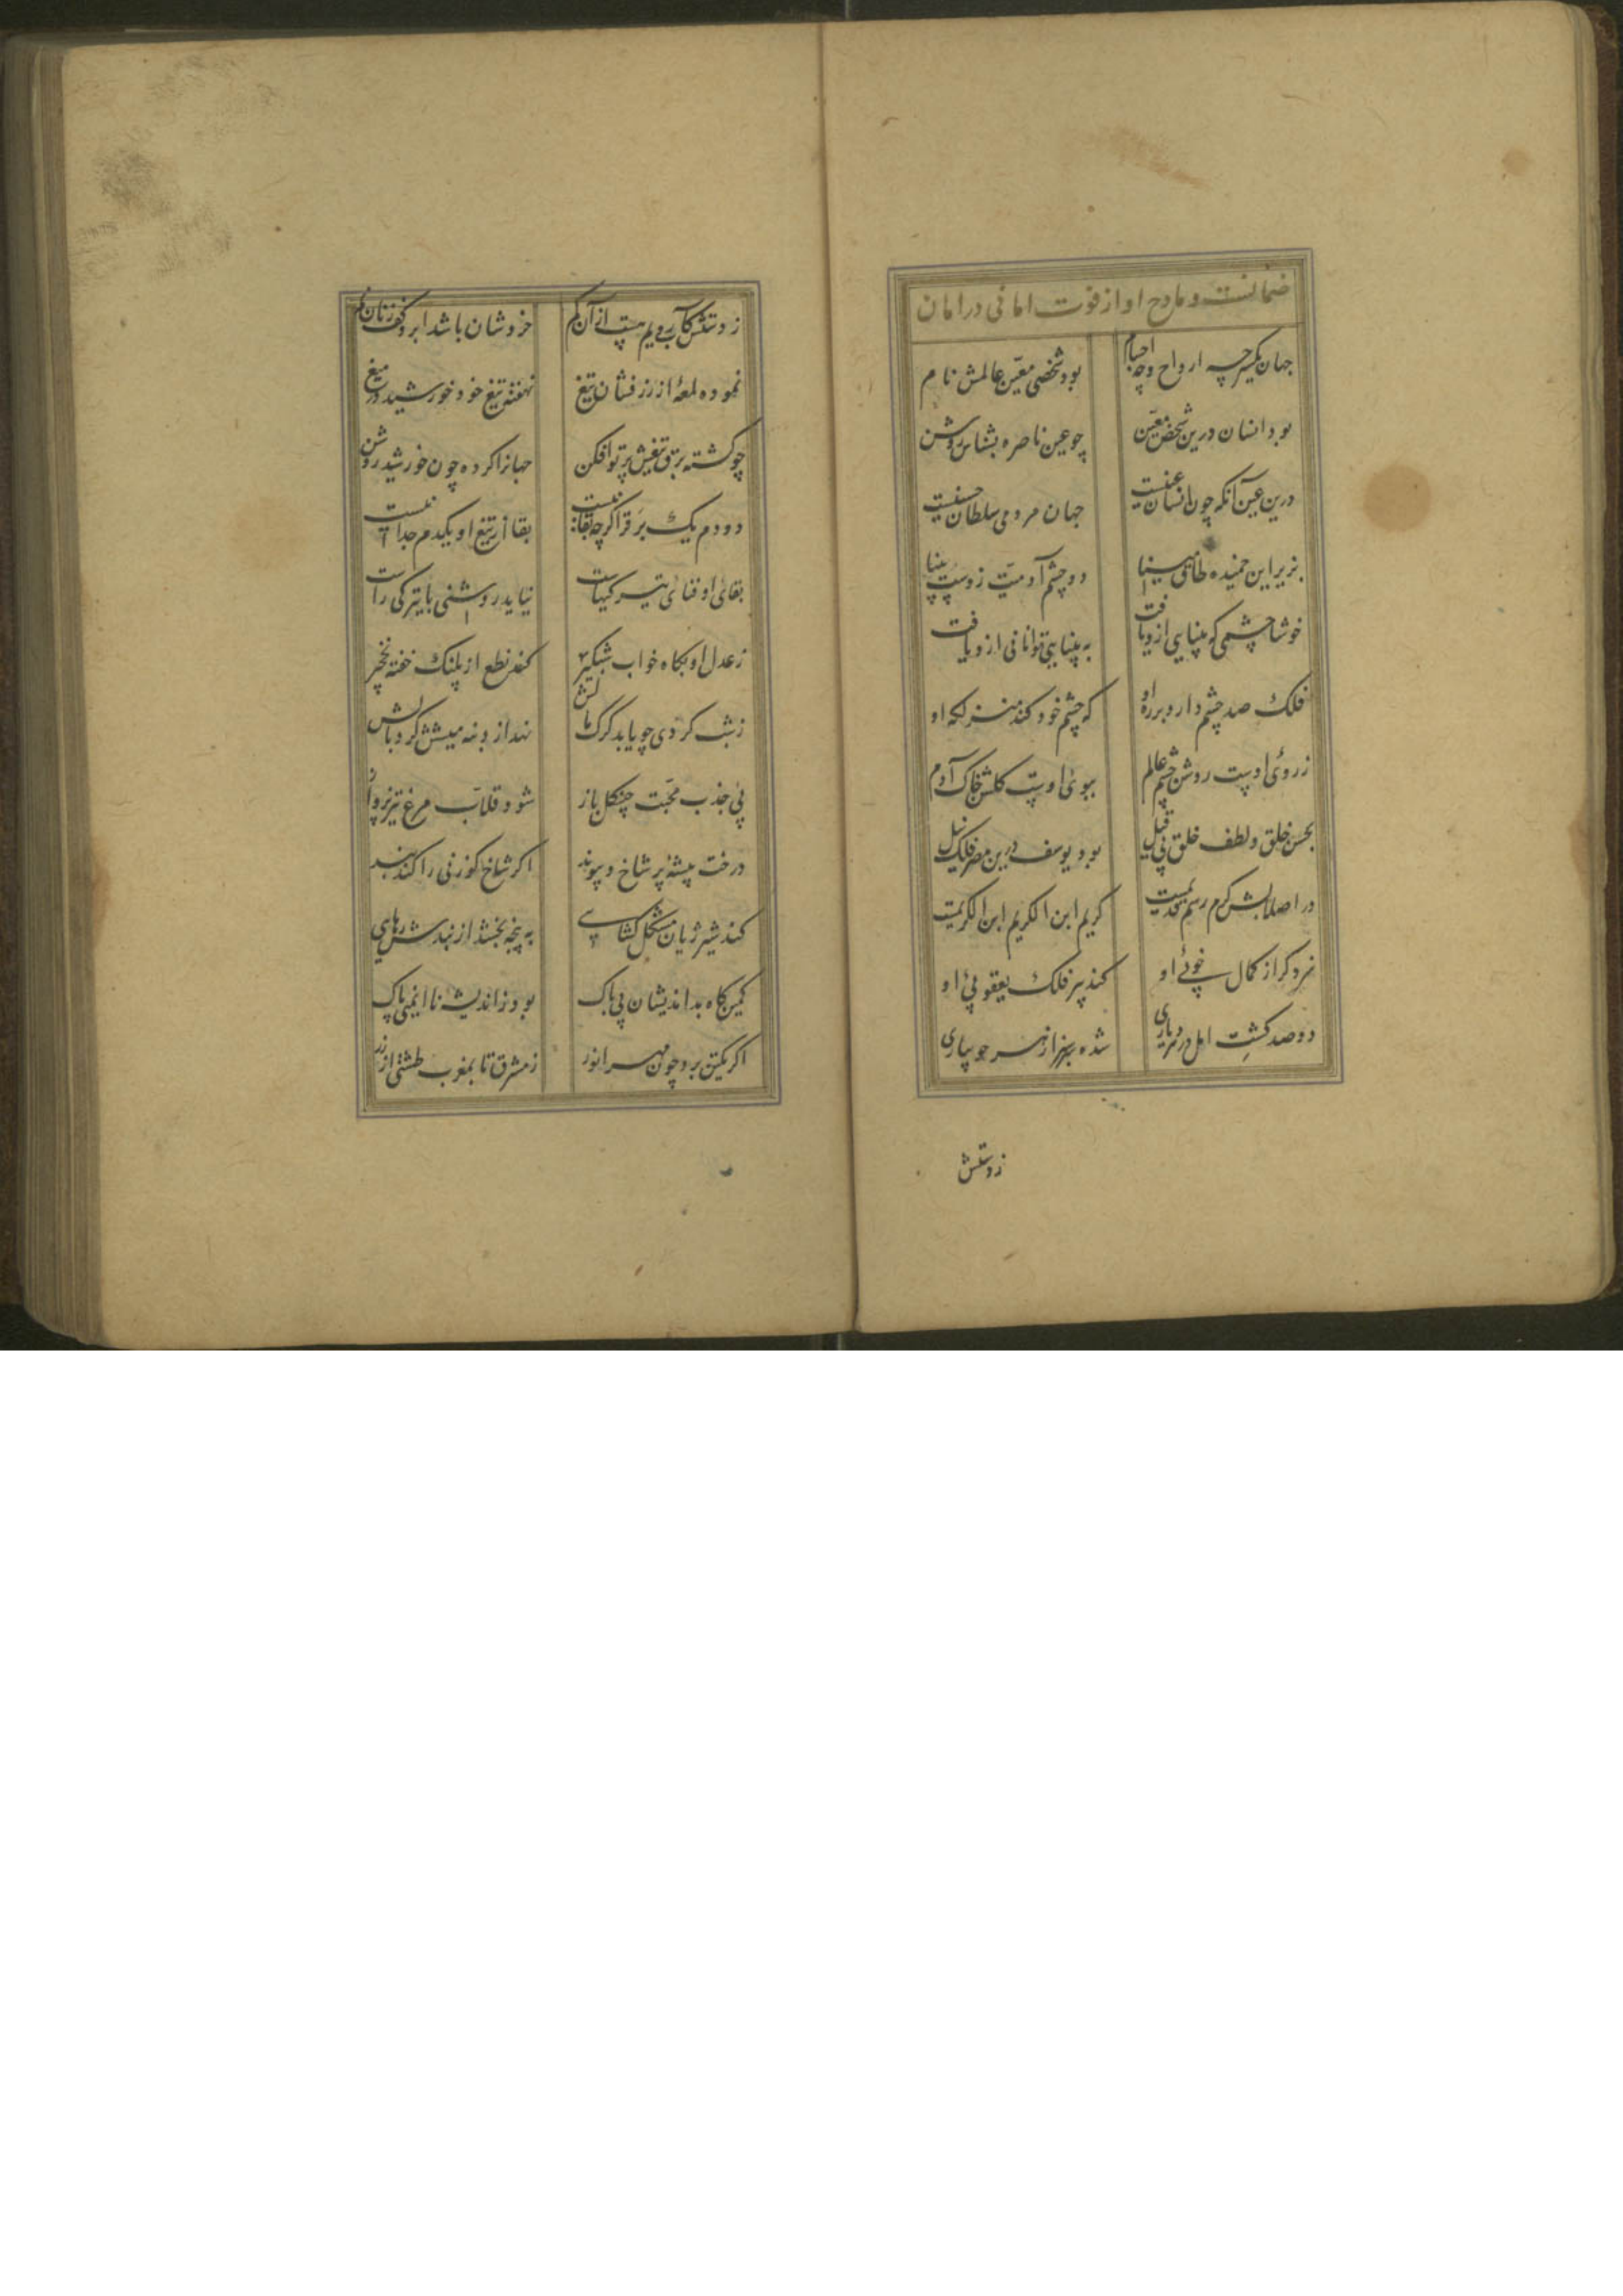 ضمانست و مادح او از فوت امانی در امان
جهان یکسر چه ارواح و چه اجسام بود شخصی معین عالمش نام
بود انسان درین شخص معین چو عین ناصره بشناس روشن
درین عین آنکه چون انسان عینست جهان مردمی سلطان حسنیست
بزیر این خمیده طاق مینا دو چشم آدمیت زوست بینا
خوشا چشمی که بینایی ازو یافت به بینایی توانائی ازو یافت
فلک صد چشم دارد بر ره او که چشم خود کند منزلکه او
ز روی اوست روشن چشم عالم ببوی اوست کلشن خاک آدم
بحسن خلق و لطف خلق بی قیل بود یوسف درین مصر فلک نیل
در اصلابش کرم رسم قدیمست کریم ابن الکریم ابن الکریمست
نمرد کر از کمال خوبی او کند پیر فلک یعقوبی او
دو صد کشت امل در هر دیاری شده سرسبز از هر جویباری
ز دستش
ز دستش کآب رویم هست از آن کم خروشان باشد ابر و کف زنان یم
نموده لمعهٔ از زرفشان تیغ نهفته تیغ خود خورشید در میغ
چو کشته برق تیغش پرتوافکن جهانرا کرده چون خورشید روشن
دو دم یک برق را کرچه بقا نیست بقا از تیغ او یکدم جدا نیست
بقای او فنای تیرکیهاست نیاید روشنی با تیرکی راست
ز عدل او بکاه خواب شبکیر کند نطع از پلنک خفته نخچیر
ز شب کردی چو یابد کرک مالش نهد از دنبه میشش کرد بالش
پی جذب محبت چنکل باز شود قلاب مرغ تیز پرواز
درخت بیشهٔ پر شاخ و پیوند اکر شاخ کوزنی را کند بند
کند شیر ژیان مشکل کشایی به پنجه بخشد از بندش رهایی
کمین کاه بداندیشان بی باک بود ز اندیشه ناایمنی پاک
اکر یکتن برد چون مهر انور ز مشرق تا بمغرب طشتی از زر